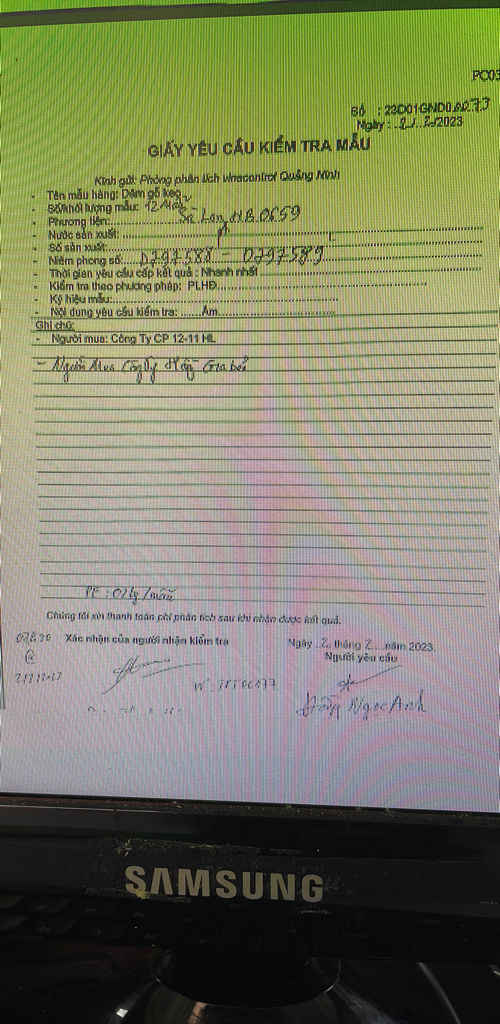 PC03
Số : 23D01GND0.0073
Ngày : 2/.2/2023
GIẤY YÊU CẦU KIỂM TRA MẪU
Kính gửi: Phòng phân tích vinacontrol Quảng Ninh
- Tên mẫu hàng: Dăm gỗ keo
- Số/khối lượng mẫu: 12
- Phương tiện: Sà Lan HB 0659
- Nước sản xuất:
- Số sản xuất:
- Niêm phong số: 0797588 - 0797589
- Thời gian yêu cầu cấp kết quả : Nhanh nhất
- Kiểm tra theo phương pháp: PLHĐ
- Ký hiệu mẫu:
- Nội dung yêu cầu kiểm tra: Ẩm
Ghi chú:
- Người mua: Công Ty CP 12-11 HL
- Người Mua Công Ty
PE : 02kg/mẫu
Chúng tôi xin thanh toán phí phân tích sau khi nhận được kết quả.
Xác nhận của người nhận kiểm tra
Ngày 2 tháng 2 năm 2023
Người yêu cầu
Ngọc Anh
SAMSUNG